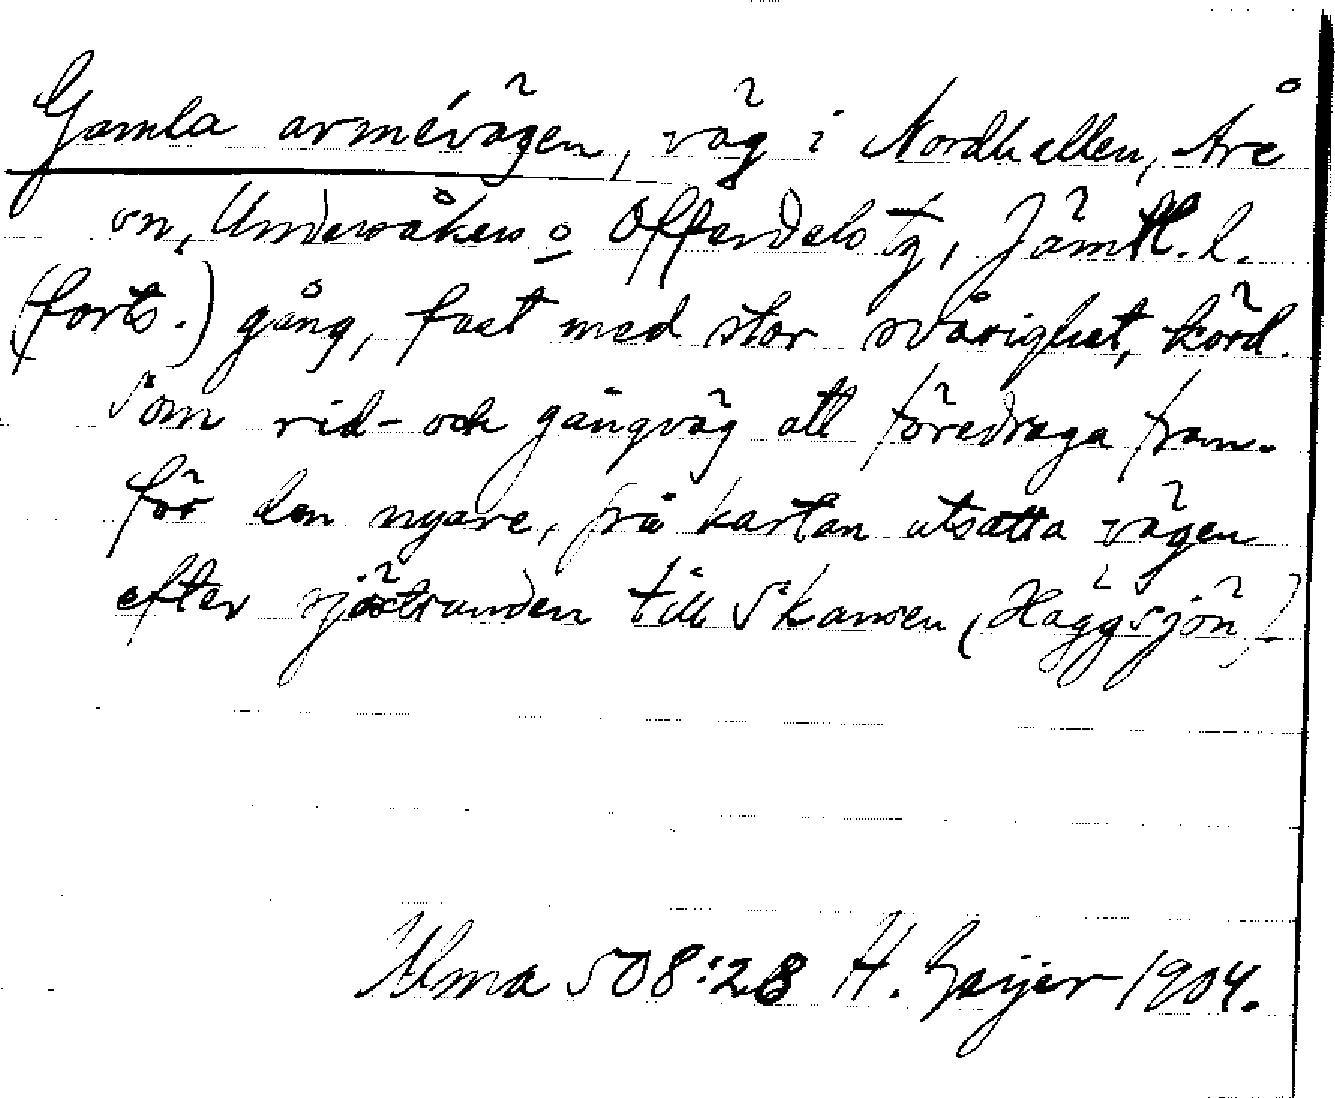 Gamla armévägen, väg i Nordhallen, Åre
sn, Undersåkers o Offerdals tg, Jämtl. l.
(forts.) gång, fast med stor svårighet, körd.
Som rid- och gångväg att föredraga fram-
för den nyare, på kartan utsatta vägen
efter sjöstranden till Skansen (Häggsjön).
Ulma 508:28 H. Geijer 1904.